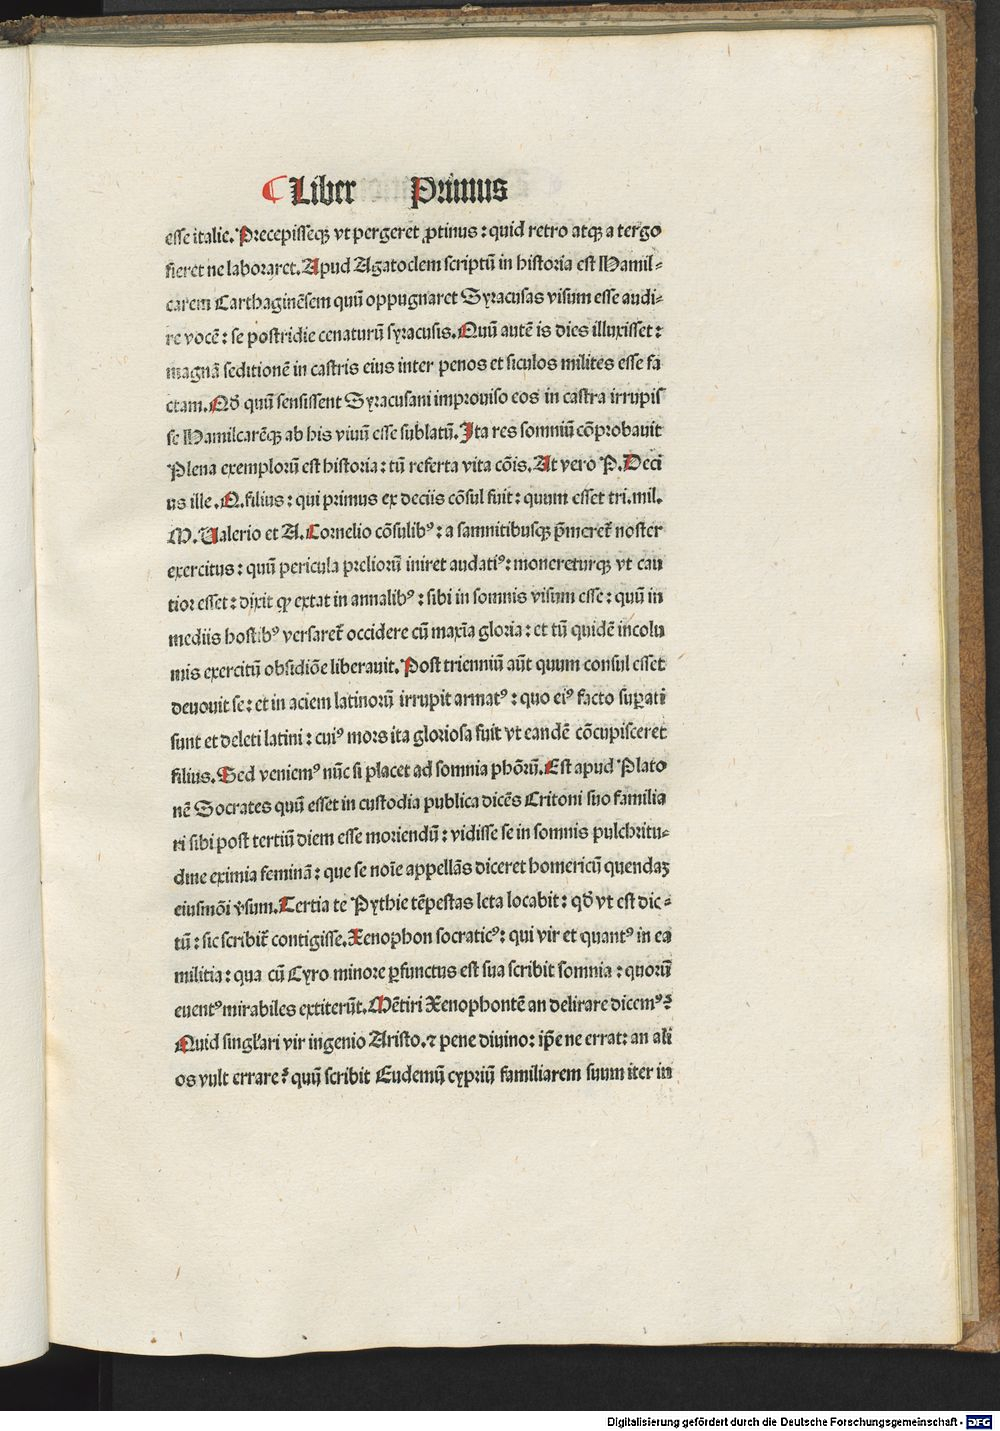 Liber Primus
esse italie. Precepisseqꝫ vt pergeret ꝓtinus: quid retro atqꝫ a tergo
fieret ne laboraret. Apud Agatoclem scriptū in historia est Hamil⸗
carem Carthaginēsem quū oppugnaret Syracusas visum esse audi⸗
re vocē: se postridie cenaturū syracusis. Quū autē is dies illuxisset:
magnā seditionē in castris eius inter penos et siculos milites esse fa
ctam. Qd̛ quū sensissent Syracusani improuiso eos in castra irrupis
se Hamilcarēqꝫ ab his viuū esse sublatū. Ita res somniū cōprobauit
Plena exemplorū est historia: tū referta vita cōis. At vero P. Deci
us ille. Q. filius: qui primus ex deciis cōsul fuit: quum esset tri. mil.
M. Valerio et A. Cornelio cōsulibꝰ: a samnitibusqꝫ p̄meret̄ noster
exercitus: quū pericula preliorū iniret audatiꝰ: monereturqꝫ vt cau
tior esset: dixit qꝙ extat in annalibꝰ: sibi in somnis visum esse: quū in
mediis hostibꝰ versaret̄ occidere cū maxīa gloria: et tū quidē incolu
mis exercitū obsidiōe liberauit. Post trienniū aūt quum consul esset
deuouit se: et in aciem latinorū irrupit armatꝰ: quo eiꝰ facto suꝑati
sunt et deleti latini: cuiꝰ mors ita gloriosa fuit vt eandē cōcupisceret
filius. Sed veniemꝰ nūc si placet ad somnia phōꝝ. Est apud Plato
nē Socrates quū esset in custodia publica dicēs Critoni suo familia
ri sibi post tertiū diem esse moriendū: vidisse se in somnis pulchritu⸗
dine eximia feminā: que se noīe appellās diceret homericū quendaꝫ
eiusmōi v̄sum. Tertia te Pythie tēpestas leta locabit: qd̛ vt est dic⸗
tū: sic scribit̄ contigisse. Xenophon socraticꝰ: qui vir et quantꝰ in ea
militia: qua cū Cyro minore ꝑfunctus est sua scribit somnia: quorū
euentꝰ mirabiles extiterūt. Mētiri Xenophontē an delirare dicemꝰ?
Quid singl̄ari vir ingenio Aristo. ⁊ pene diuino: ip̄e ne errat: an ali
os vult errare? quū scribit Eudemū cypriū familiarem suum iter in
Digitalisierung gefördert durch die Deutsche Forschungsgemeinschaft - DFG